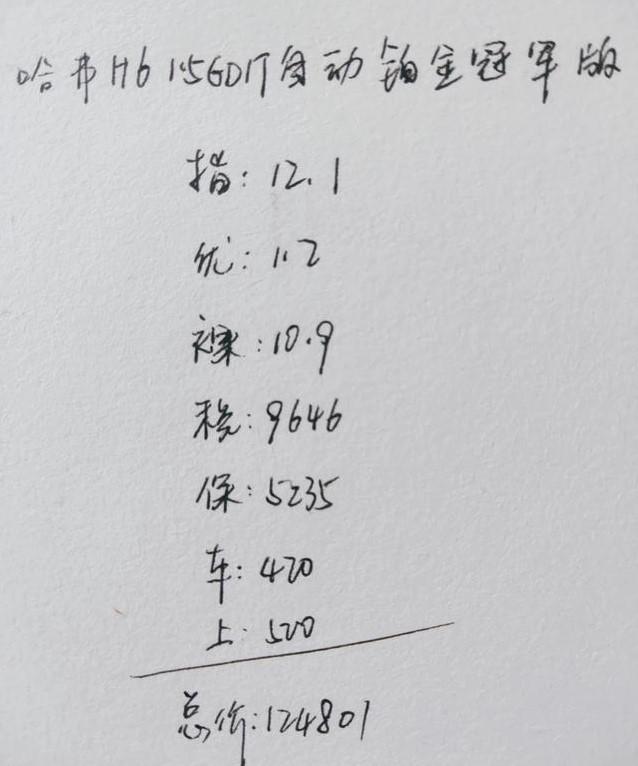 哈弗H6 1.5GDIT自动铂金冠军版
指: 12.1
优: 1.2
裸: 10.9
税: 9646
保: 5235
车: 420
上: 500
总价: 124801